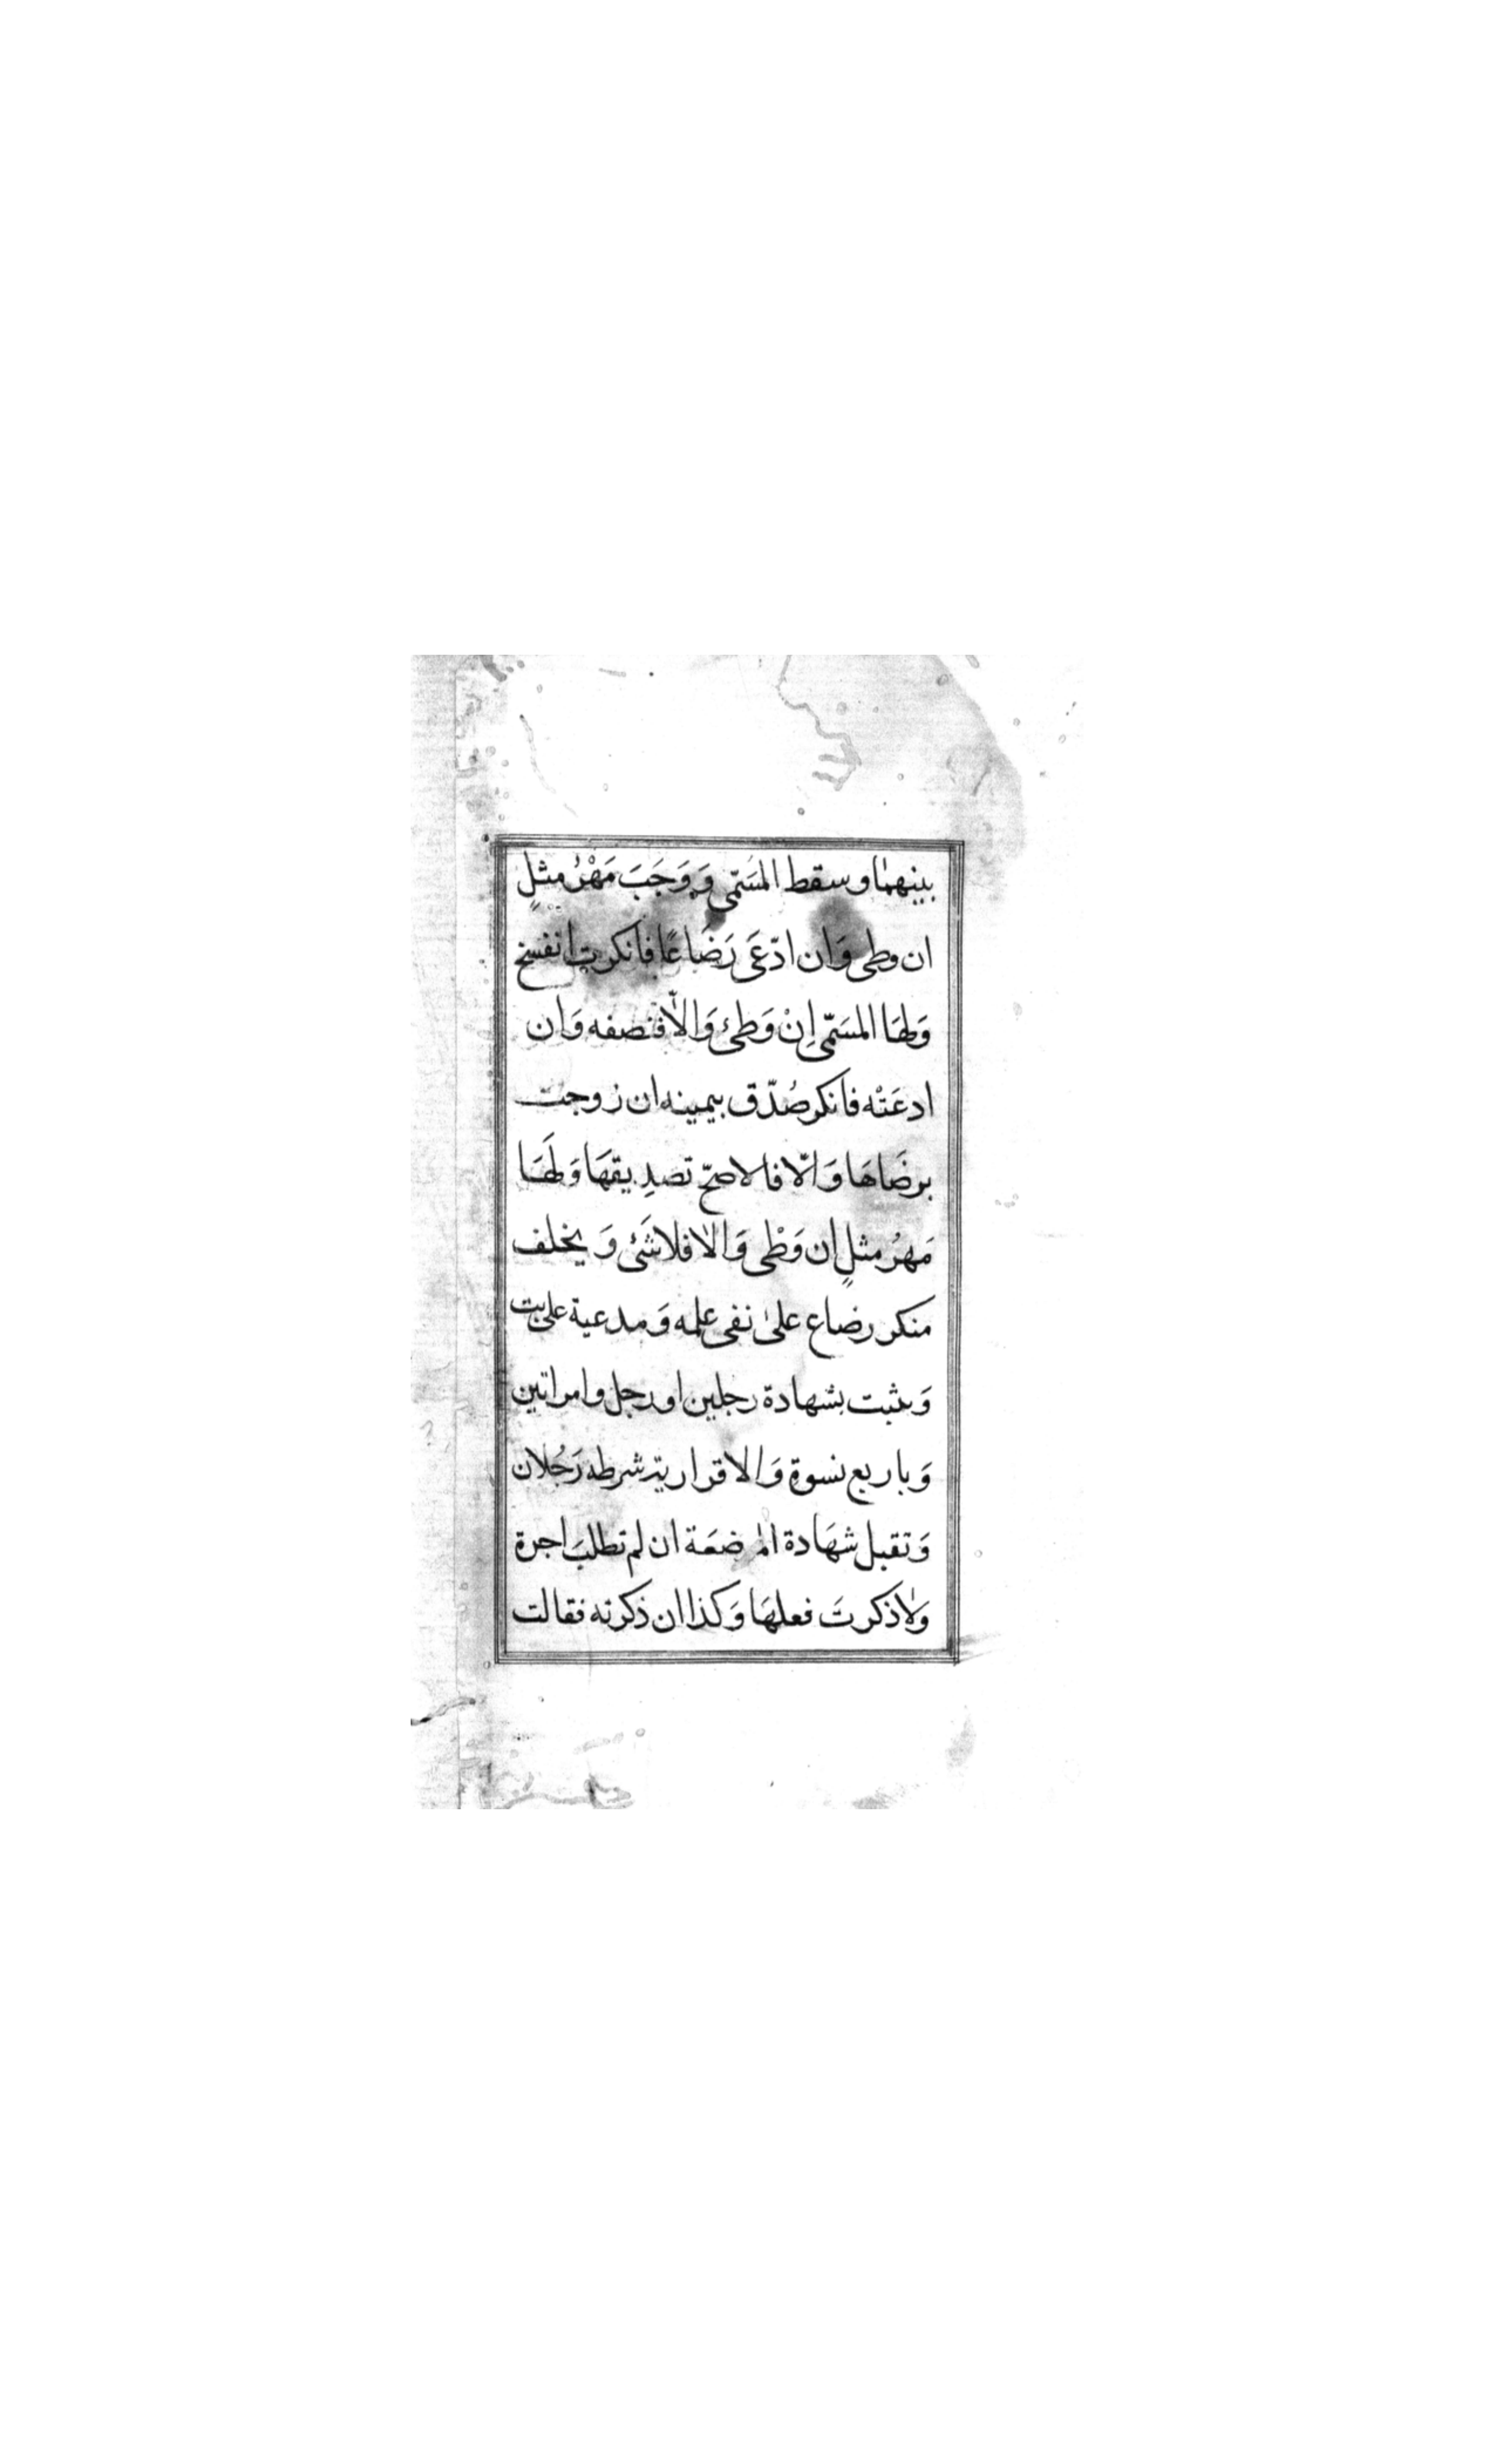 بينهما وسقط المسَمّى وَوَجَبَ مَهْرُ مثلٍ
ان وطى وَان ادّعَى رَضَاعًا فانكرت انفسخ
وَلهَا المسَمّى اِنْ وَطئ وَالاّ فنصفه وَان
ادعَتْه فانكر صُدّق بيمينه ان زوجت
برضَاهَا وَالاّ فالاصحّ تصديقهَا وَلهَا
مَهرُ مثلٍ ان وَطْى وَالا فلا شَئ وَيحلف
منكر رضاع على نفى علمه وَمدعيه على بت
وَيثبت بشهادة رجلين او رجل وامراتين
وَباربع نسوةٍ وَالاقرار به شرطه رَجُلان
وَتقبل شهَادة المرضعَة ان لم تطلبَ اجرة
وَلا ذكرتَ فعلهَا وَكذا ان ذكرته فقالت